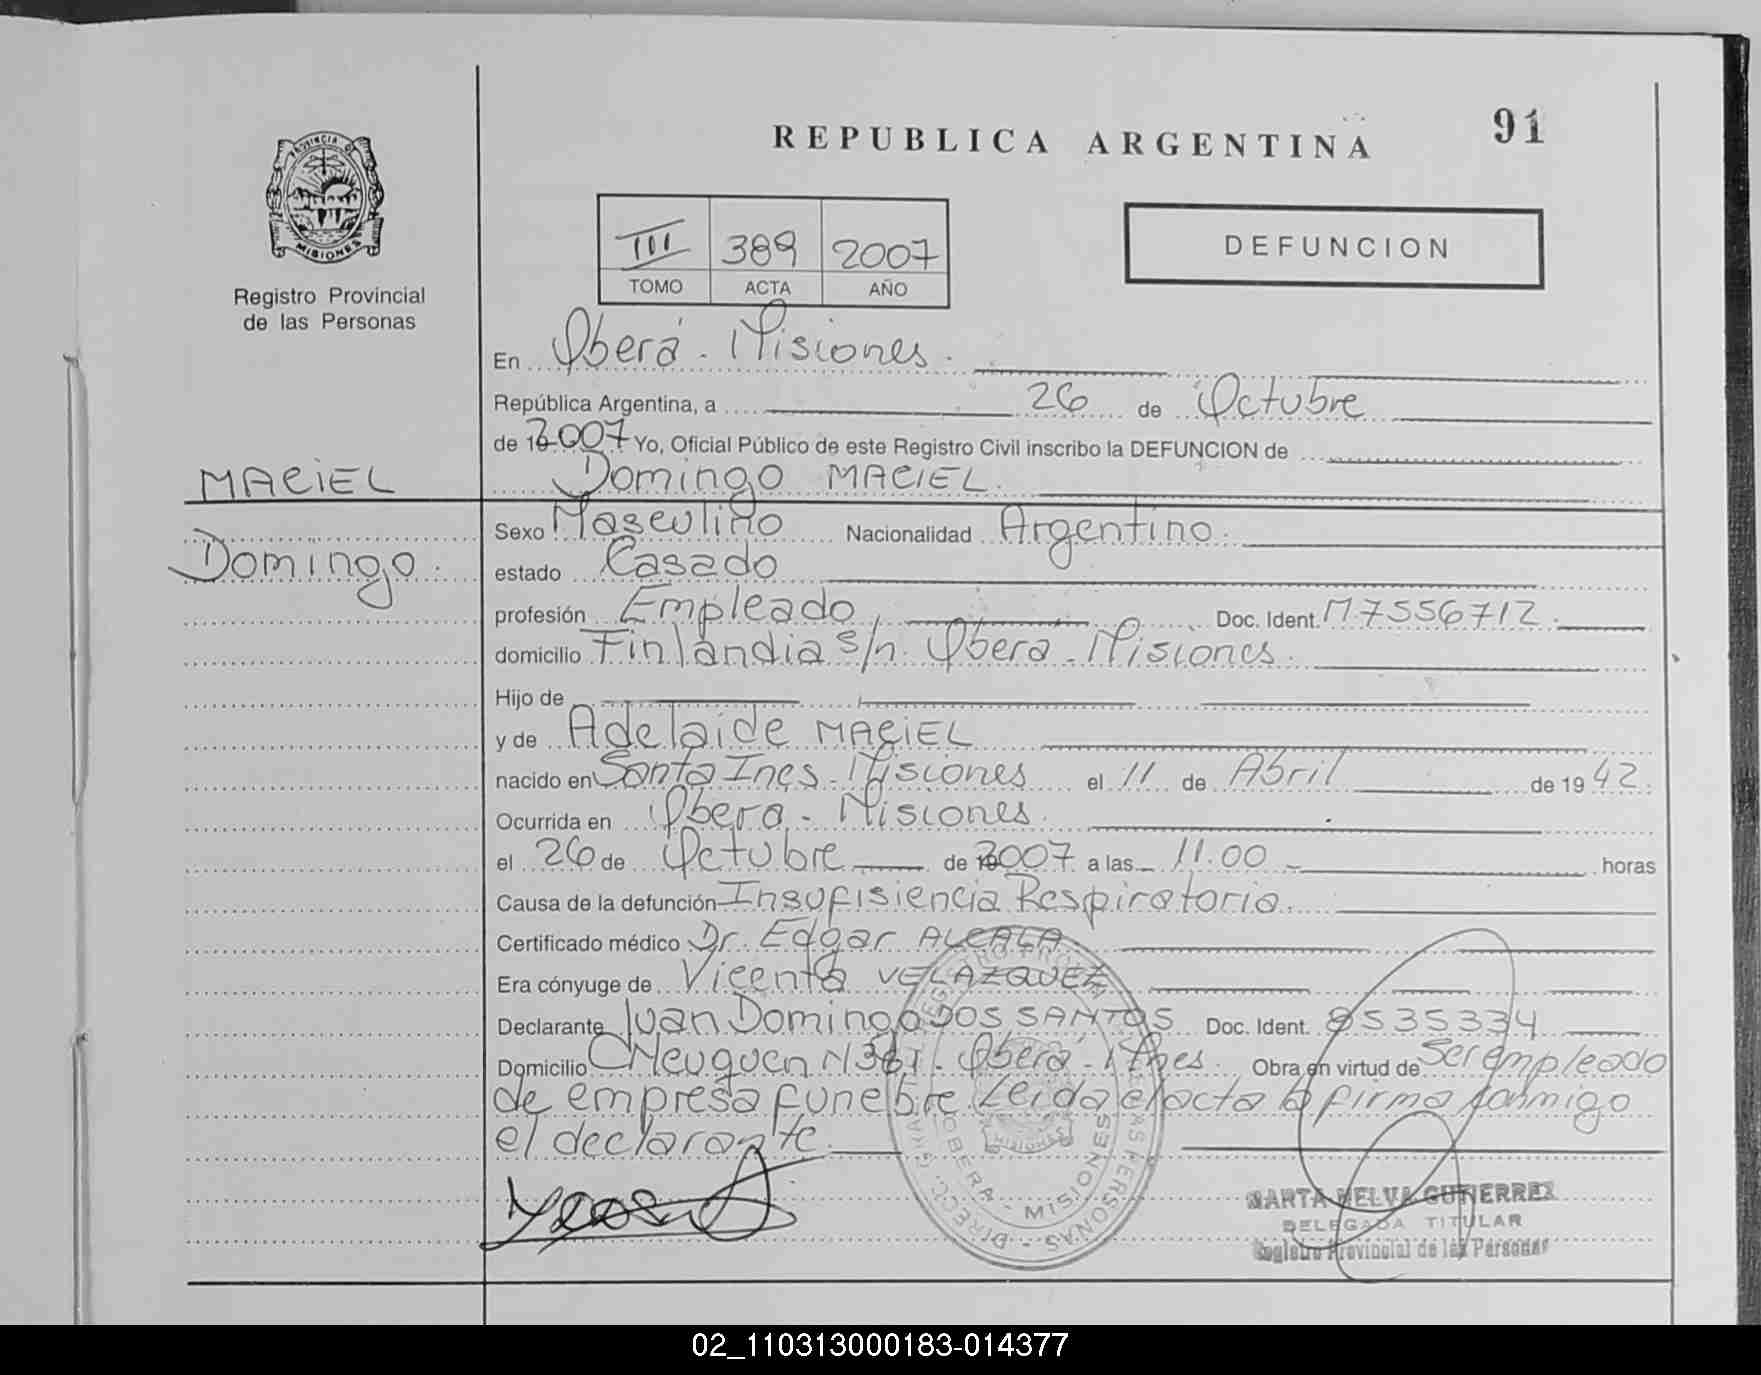 REPUBLICA ARGENTINA
91
PROVINCIA DE
MISIONES
Registro Provincial
de las Personas
III 389 2007
TOMO ACTA AÑO
DEFUNCION
En Oberá - Misiones.
República Argentina, a 26 de Octubre
de 19 2007 Yo, Oficial Público de este Registro Civil inscribo la DEFUNCION de
MACIEL
Domingo MACIEL.
Domingo.
Sexo Masculino Nacionalidad Argentino.
estado Casado
profesión Empleado, Doc. Ident. M7556712.
domicilio Finlandia s/n. Oberá - Misiones.
Hijo de
y de Adelaide MACIEL
nacido en Santa Ines - Misiones el 11 de Abril de 1942.
Ocurrida en Oberá - Misiones.
el 26 de Octubre de 2007 a las 11.00 horas
Causa de la defunción Insufisiencia Respiratoria.
Certificado médico Dr. Edgar ALCALA.
Era cónyuge de Vicenta VELAZQUEZ
Declarante Juan Domingo DOS SANTOS Doc. Ident. 8535334
Domicilio C/Neuquen N 361 - Oberá - Mnes. Obra en virtud de Ser empleado
de empresa funebre. Leida el acta la firma conmigo
el declarante.
OBERA - MISIONES
MISIONES
MARTA NELVA GUTIERREZ
DELEGADA TITULAR
Registro Provincial de las Personas
02_110313000183-014377